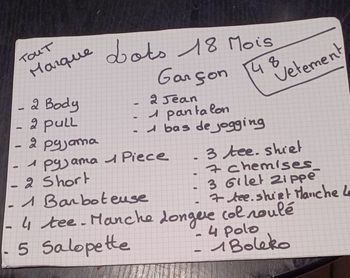 TOUT Marque
Lots 18 Mois
Garçon
48 Vetement
- 2 Body
- 2 pull
- 2 pyjama
- 1 pyjama 1 Piece
- 2 Short
- 1 Barboteuse
- 4 tee. Manche longue col roulé
- 5 Salopette
- 2 Jean
- 1 pantalon
- 1 bas de jogging
- 3 tee. shirt
- 7 chemises
- 3 Gilet Zippé
- 7 tee. shirt Manche L
- 4 Polo
- 1 Boléro